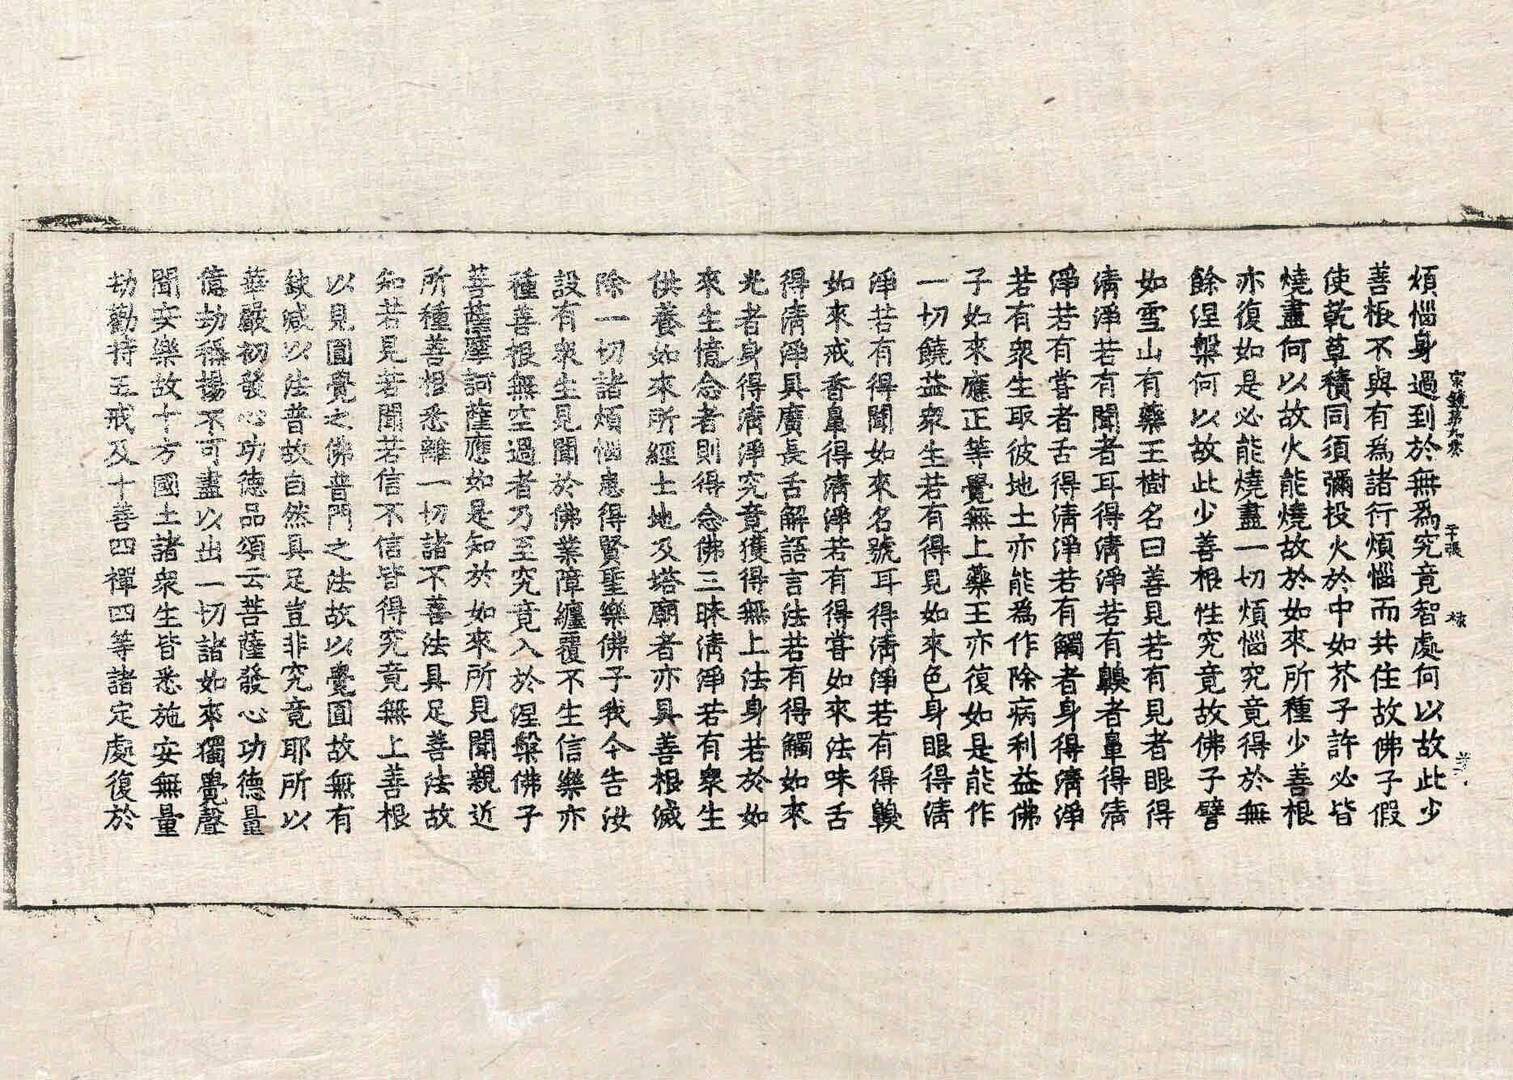 煩惱身過到於無爲究竟智處何以故此少
善根不與有爲諸行煩惱而共住故佛子假
使乾草積同須彌投火於中如芥子許必皆
燒盡何以故火能燒故於如來所種少善根
亦復如是必能燒盡一切煩惱究竟得於無
餘涅槃何以故此少善根性究竟故佛子譬
如雪山有藥王樹名曰善見若有見者眼得
清淨若有聞者耳得清淨若有齅者鼻得清
淨若有嘗者舌得清淨若有觸者身得清淨
若有衆生取彼地土亦能爲作除病利益佛
子如來應正等覺無上藥王亦復如是能作
一切饒益衆生若有得見如來色身眼得清
淨若有得聞如來名號耳得清淨若有得齅
如來戒香鼻得清淨若有得嘗如來法味舌
得清淨具廣長舌解語言法若有得觸如來
光者身得清淨究竟獲得無上法身若於如
來生憶念者則得念佛三昧清淨若有衆生
供養如來所經土地及塔廟者亦具善根滅
除一切諸煩惱患得賢聖樂佛子我今告汝
設有衆生見聞於佛業障纏覆不生信樂亦
種善根無空過者乃至究竟入於涅槃佛子
菩薩摩訶薩應如是知於如來所見聞親近
所種善根悉離一切諸不善法具足善法故
知若見若聞若信不信皆得究竟無上善根
以見圓覺之佛普門之法故以覺圓故無有
缺減以法普故自然具足豈非究竟耶所以
華嚴初發心功德品頌云菩薩發心功德量
億劫稱揚不可盡以出一切諸如來獨覺聲
聞安樂故十方國土諸衆生皆悉施安無量
劫勸持五戒及十善四禪四等諸定處復於